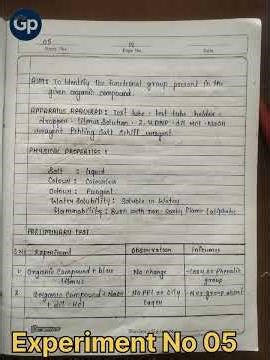 Gp
05
Expt. No.
Page No.
Date
AIM: To Identify the functional group present in the
given organic compound.
APPARATUS REQUIRED: Test tube, test tube holder,
dropper, litmus solution, 2,4 DNP, dil HCl, NaOH
reagent Fehling Solt Schiff reagent
PHYSICAL PROPERTIES:
: liquid
Colour: Colourless
Odour: Pungent
Water solubility: Soluble in Water
Flammability: Burn with non-sooty flame (aliphatic
PRELIMINARY TEST
S.No Experiment Observation Inference
1 Organic Compound + blue No change Phenolic
litmus group
2 Organic Compound + NaOH No PPt or oily
+ dil HCl Layer
Experiment No 05